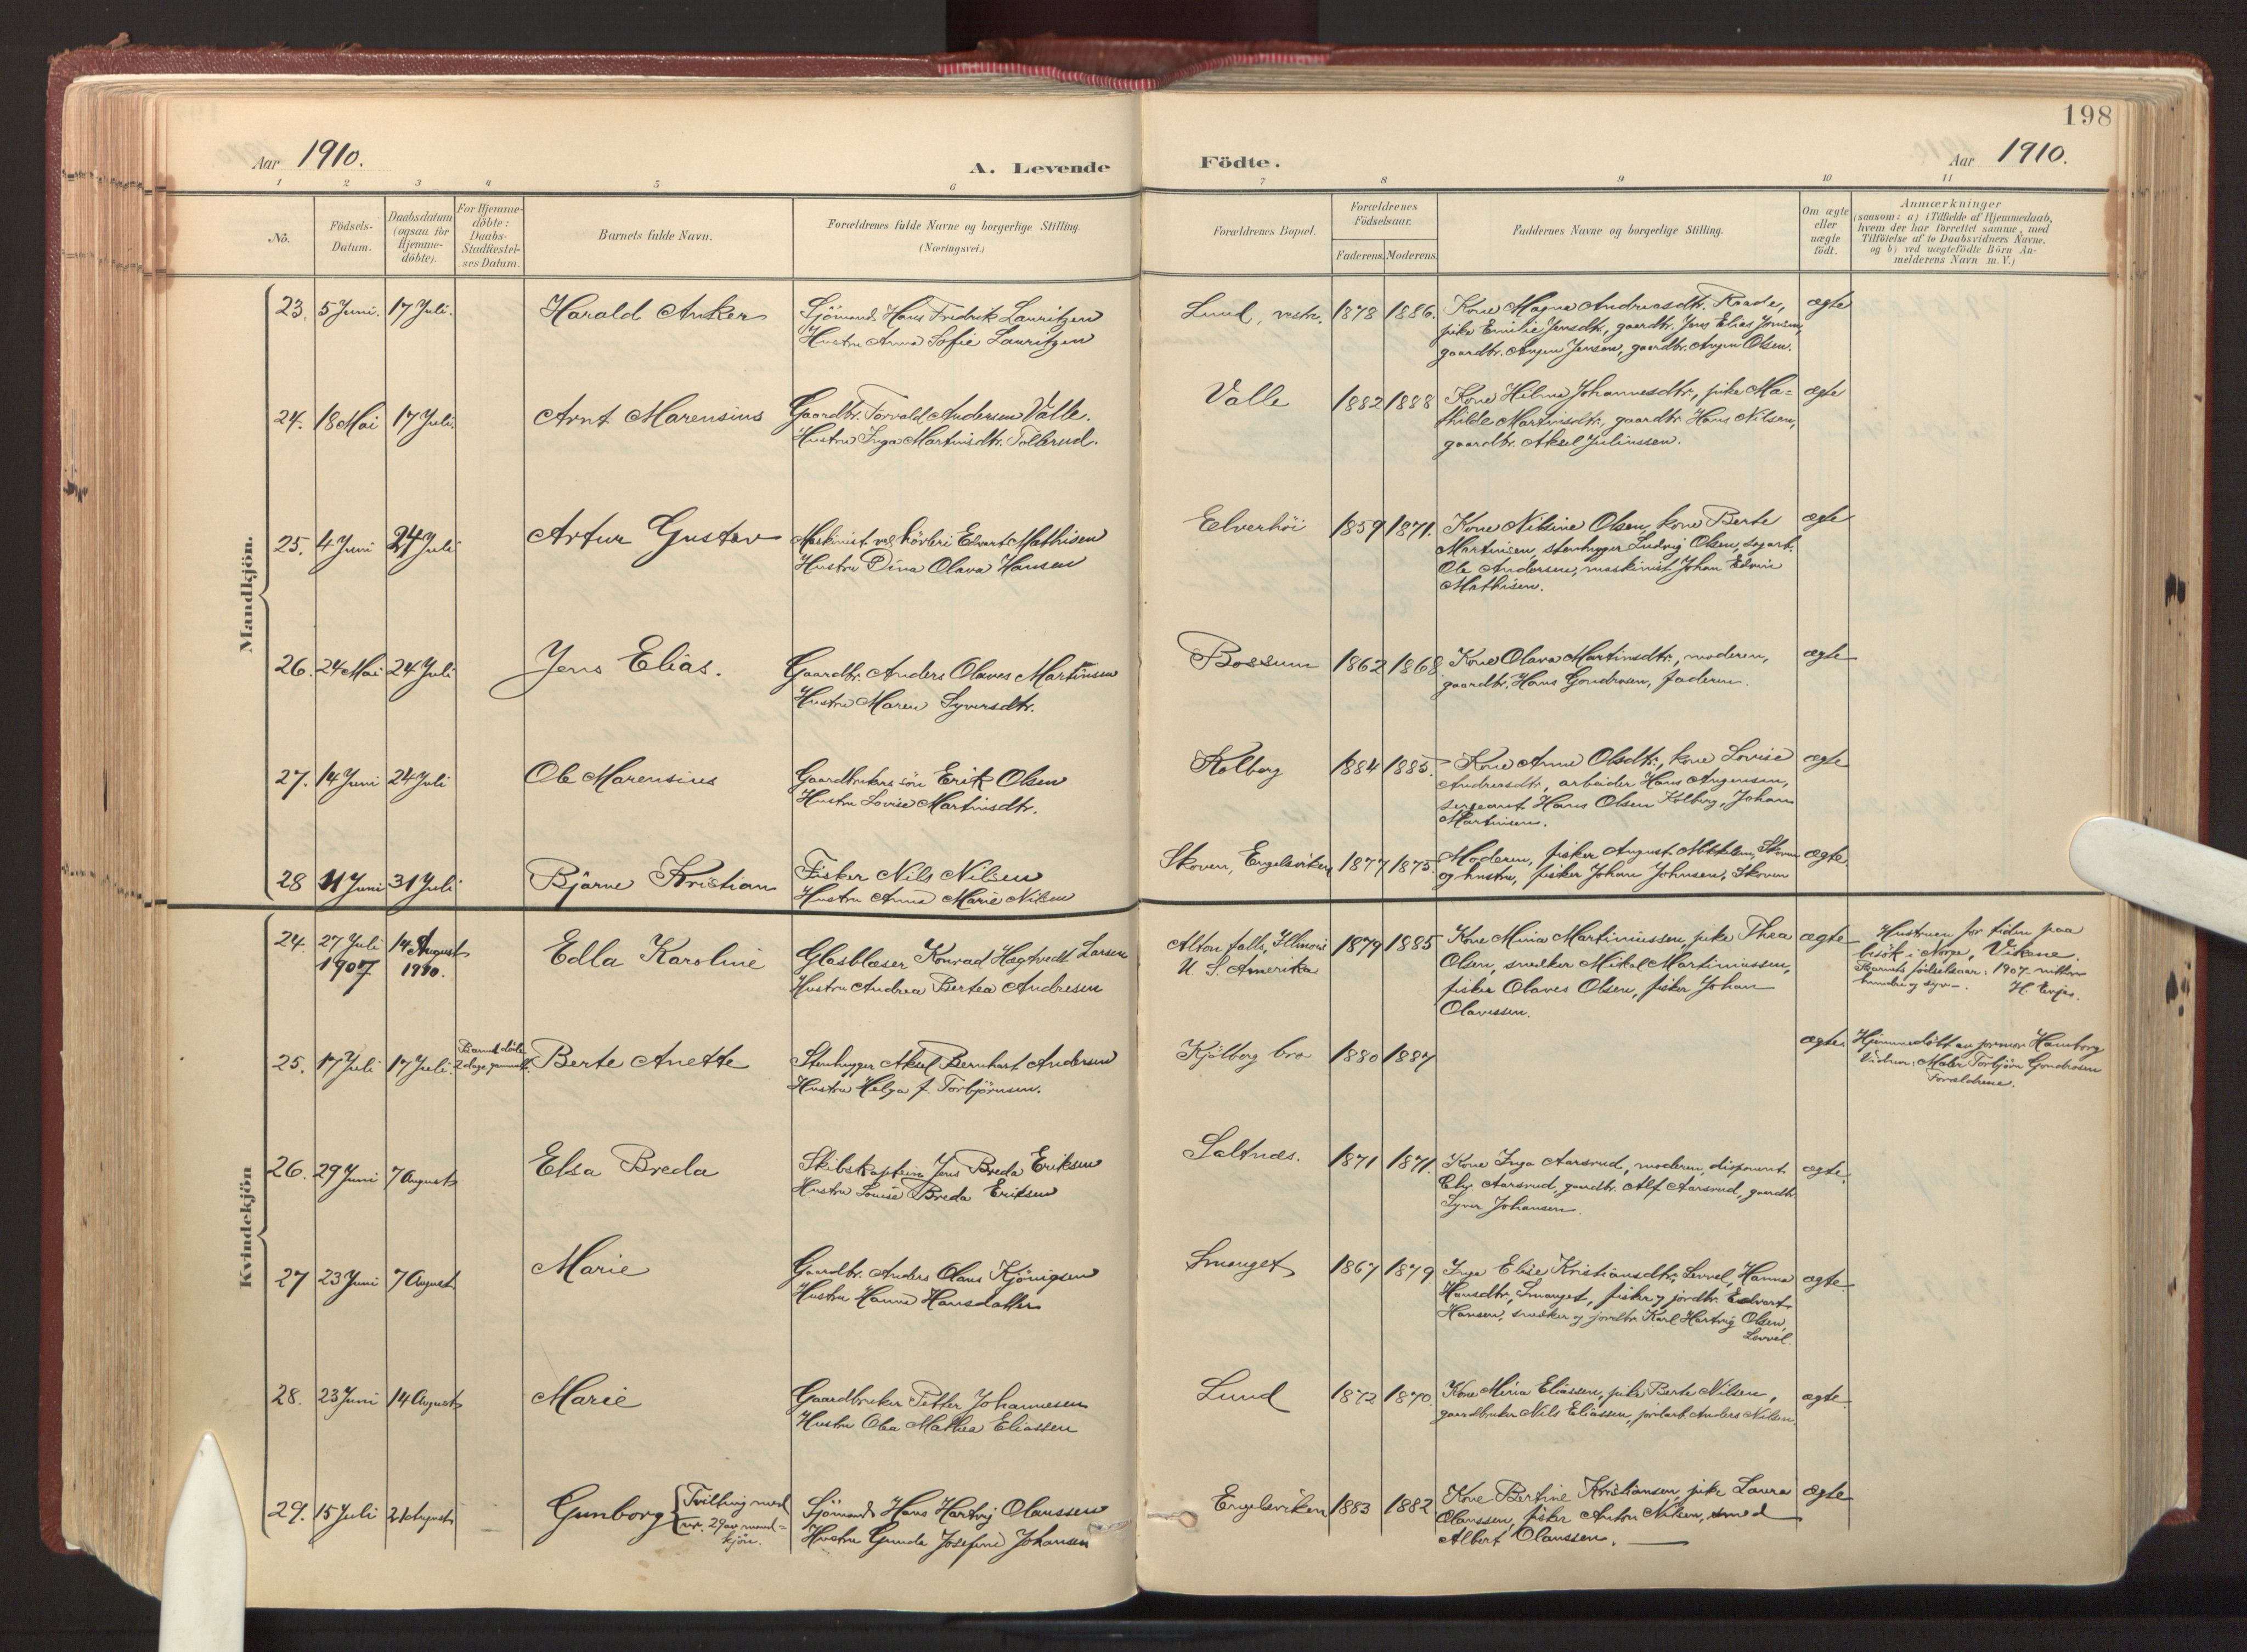 198
Aar 1910.
A. Levende
Födte.
Aar 1910.
1 2 3 4 5 6 7 8 9 10 11
No.
Födsels-
Datum.
Daabsdatum
(ogsaa for
Hjemme-
döbte).
For Hjemme-
döbte:
Daabs-
Stadfæstel-
ses Datum.
Barnets fulde Navn.
Forældrenes fulde Navne og borgerlige Stilling.
(Næringsvei.)
Forældrenes Bopæl.
Forældrenes
Födselsaar.
Faderens. Moderens.
Faddernes Navne og borgerlige Stilling.
Om ægte
eller
uægte
födt.
Anmærkninger
(saasom: a) i Tilfælde af Hjemmedaab,
hvem der har forrettet samme, med
Tilföielse af to Daabsvidners Navne,
og b) ved uægtefödte Börn An-
melderens Navn m. V.)
Mandkjön.
23. 5 Juni. 17 Juli.
Harald Anker
Sjömand Hans Fredrik Lauritzen
Hustru Anna Sofie Lauritzen
Lund, vestr. 1878 1886.
Kone Magna Andreasdtr. Raade,
pike Emilie Jensdtr, gaardbr. Jens Elias Jensen,
gaardbr. Jensen, gaardbr. Olsen.
ægte
24. 18 Mai 17 Juli.
Arnt Marensius
Gaardbr. Torvald Andersen Valle.
Hustru Inga Martinsdtr. Tollerud.
Valle 1882 1888
Kone Hilma Johannesdtr, pike Ma-
thilde Martinsdtr, gaardbr. Hans Nilsen,
gaardbr. Aksel Juliussen.
ægte
25. 4 Juni 24 Juli
Artur Gustav
Maskinist ved Edvart Mathisen
Hustru Dina Olava Hansen
Elverhöi 1859 1871.
Kone Nikoline Olsen, kone Berte
Martinsen, stenhugger Ludvig Olsen,
Ole Andersen, maskinist Johan Edvin
Mathisen.
ægte
26. 24 Mai 24 Juli
Jens Elias.
Gaardbr. Anders Olaves Martinsen
Hustru Maren Syversdtr.
Bossum 1862 1868.
Kone Olava Martinsdtr, moderen,
gaardbr. Hans Gundrosen, faderen.
ægte
27. 14 Juni 24 Juli
Ole Marensius
Gaardbrukers sön Erik Olsen
Hustru Lovise Martinsdtr.
Kolberg 1884 1885.
Kone Anne Olsdtr, kone Lovise
Andreasdtr, arbeider Hans Jörgensen,
sergeant Hans Olsen Kolberg, Johan
Martinsen.
ægte
28 11 Juni 31 Juli
Bjarne Kristian
Fisker Nils Nilsen
Hustru Anna Marie Nilsen
Skoven, Engelsviken 1877 1875.
Moderen, fisker August Mikkelsen, Skoven
og hustru, fisker Johan Johnsen, Skoven
ægte.
Kvindekjön
24. 27 Juli 14 August
1907 1910.
Edla Karoline
Glasblæser Konrad Hagtvedt Larsen
Hustru Andrea Bertea Andresen
Alton falls, Illinois
U. S. Amerika
1879 1885
Kone Mina Martiniussen, pike Thea
Olsen, snedker Mikal Martiniussen,
fisker Olaves Olsen, fisker Johan
Olavessen.
ægte
Hustruen for tiden paa
besök i Norge, Vikane.
Barnets födselsaar: 1907 nitten
hundre og syv —.
25. 17 Juli 17 Juli.
Barnet döde
2 dage gammelt.
Berte Anette
Stenhugger Aksel Bernhart Andersen
Hustru Helga f. Torbjörnsen.
Kjölberg bro 1880 1887
ægte.
Hjemmedöbt av jormor Hamborg
Vidner: Maler Torbjörn Gundrosen
Forældrene.
26. 29 Juni 7 August
Elsa Breda
Skibskaptein Jens Breda Eriksen
Hustru Louise Breda Eriksen
Saltnæs. 1871 1871.
Kone Inga Aarsrud, moderen, disponent
Chr. Aarsrud, gaardbr. Alf Aarsrud, gaardbr.
Syver Johansen.
ægte.
27 23 Juni 7 August
Marie
Gaardbr. Anders Olaus Kjönigsen
Hustru Hanna Hansdatter
Smauget 1867 1879.
Inga Elise Kristiansdtr, Lervel, Hanna
Hansdtr, Smauget, fisker og jordbr. Edvart
Hansen, snedker og jordbr. Karl Hartvig Olsen,
Lervel.
ægte.
28. 23 Juni 14 August
Marie
Gaardbruker Petter Johannesen
Hustru Olea Mathea Eliassen
Lund 1872 1870.
Kone Mina Eliassen, pike Berte Nilsen,
gaardbruker Nils Eliassen, jordarb. Anders Nilsen.
ægte.
29. 15 Juli 21 August
Gunborg
Tvilling med
nr. 29 av mand-
kjön.
Sjömand Hans Hartvig Olaussen
Hustru Gunda Josefine Johansen
Engelsviken 1883 1882
Kone Bertine Kristiansen, pike Laura
Olaussen, fisker Anton Nilsen, smed
Albert Olaussen.
ægte